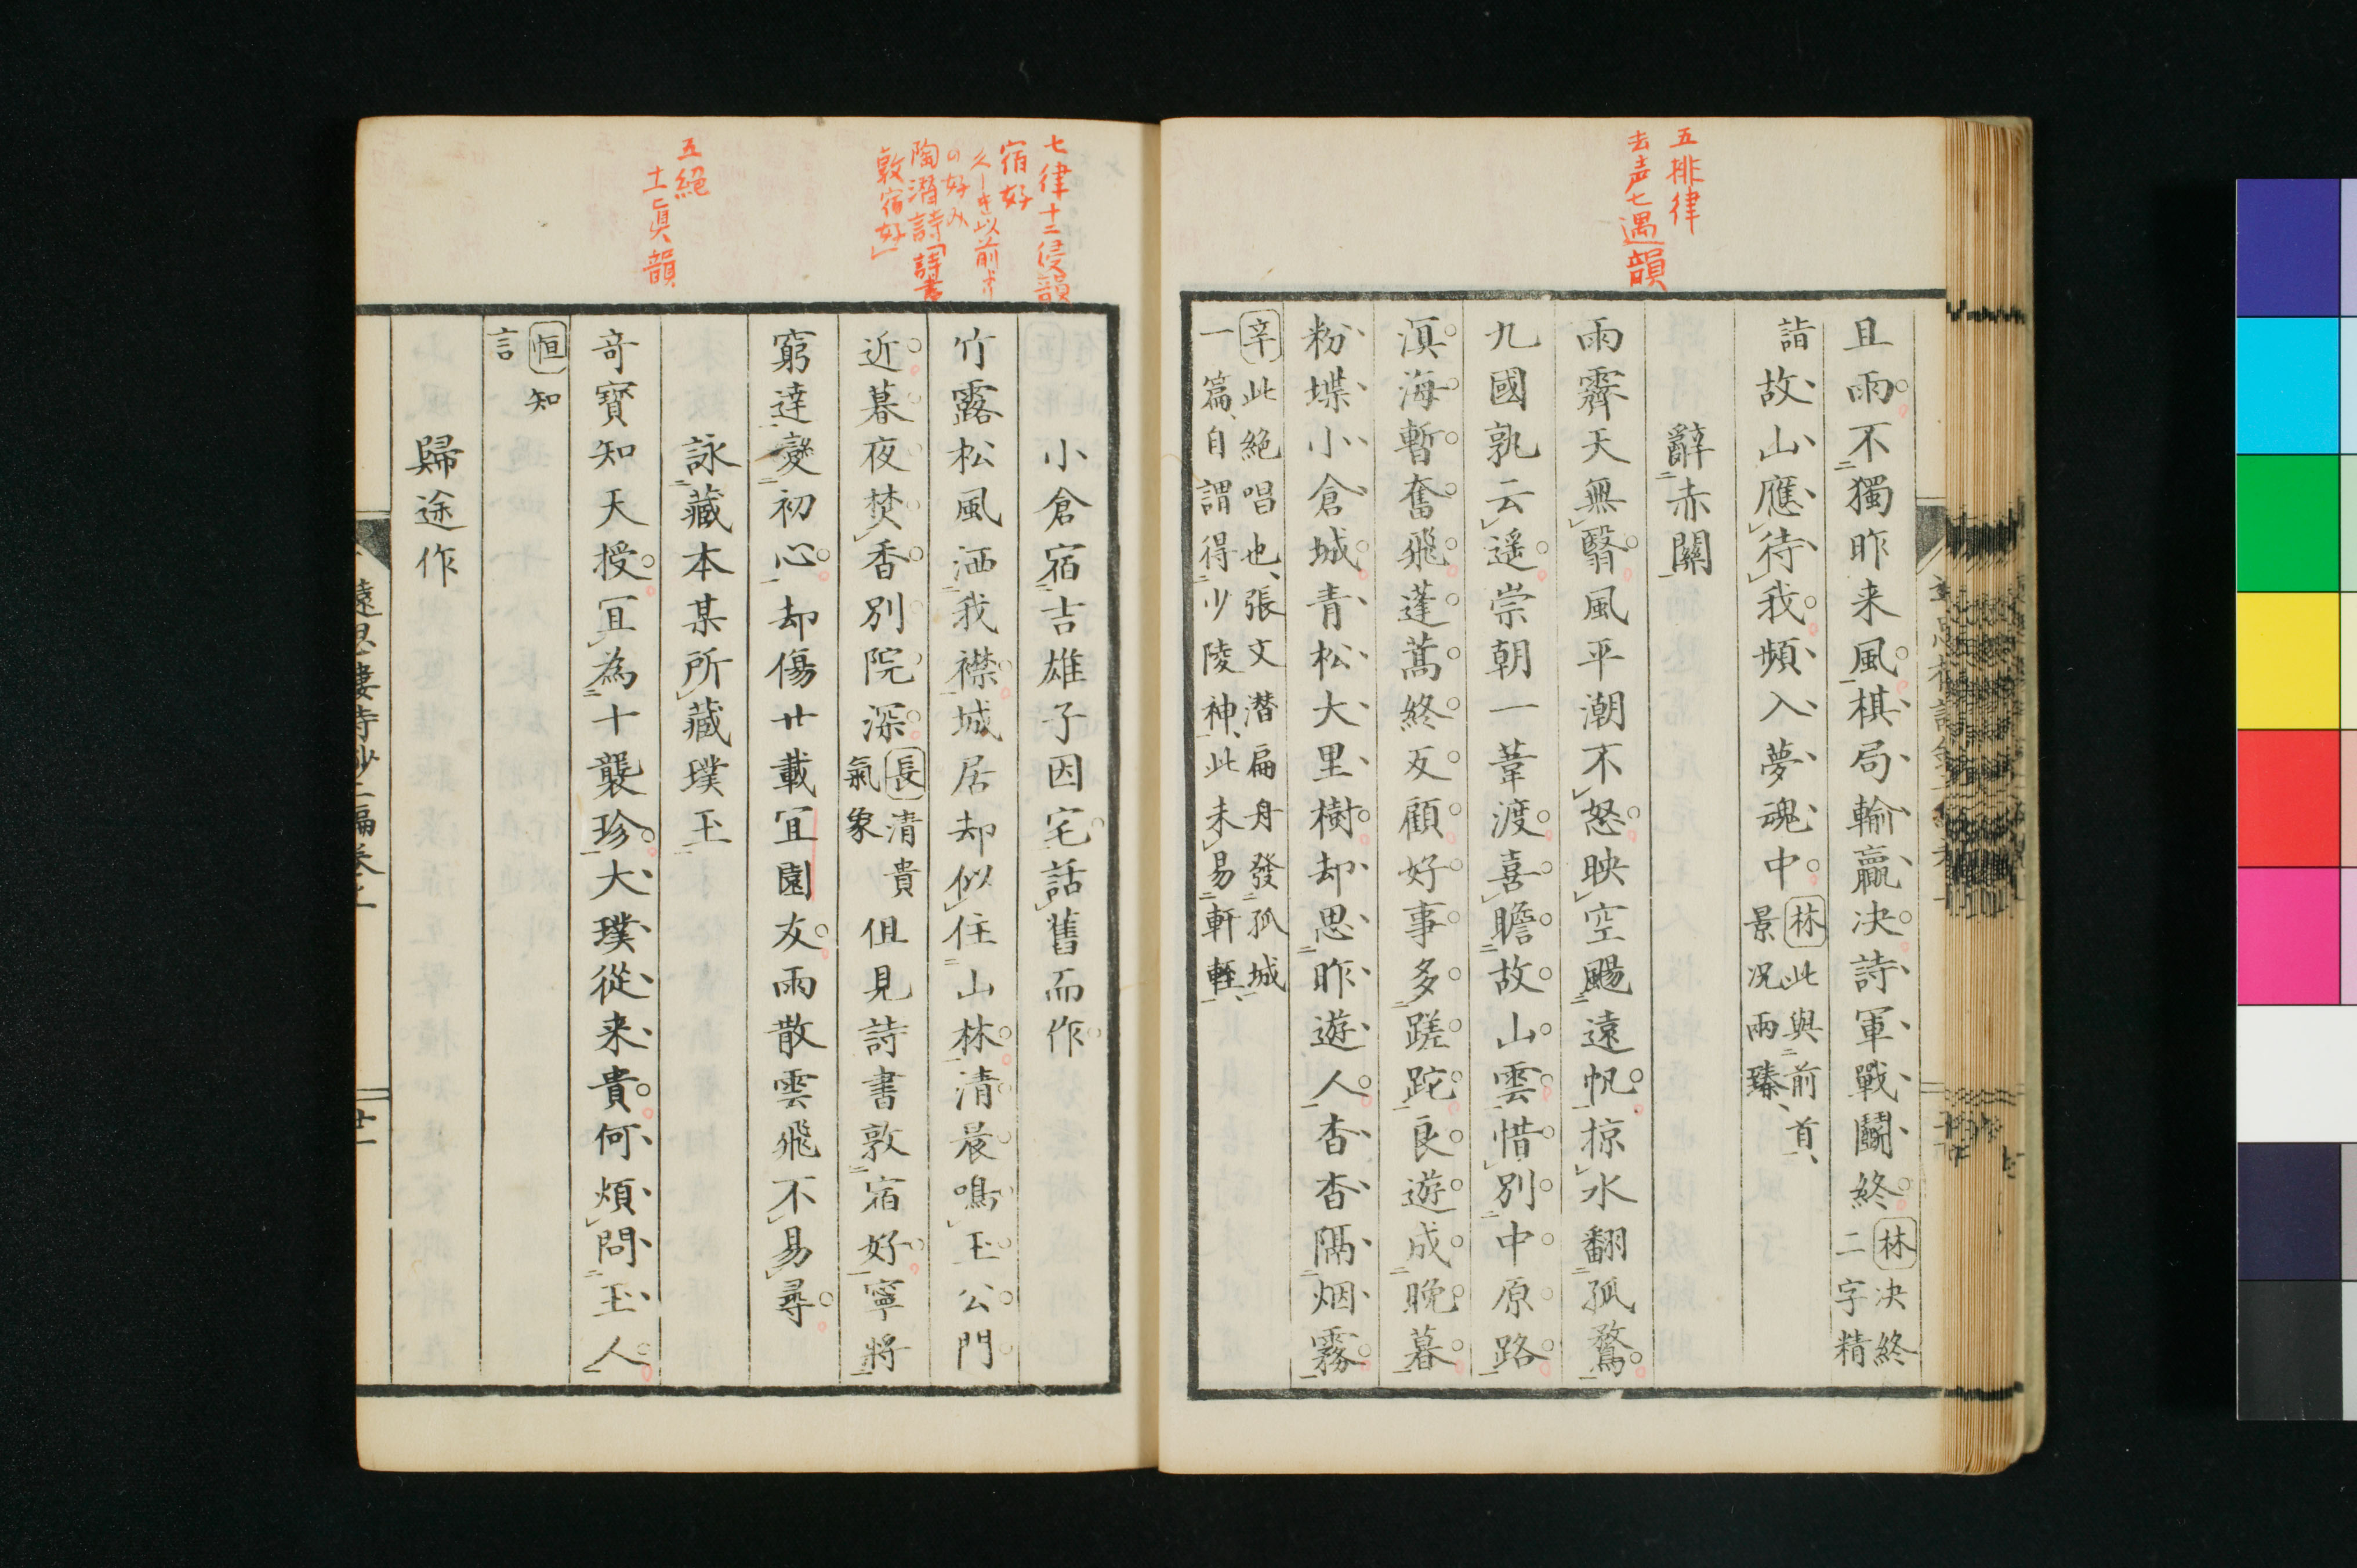 五排律
去声七遇韻
且雨不獨昨来風棋局輸贏决詩軍戰鬭終林决終
二字精
詣故山應待我頻入夢魂中林此與前首
景况兩臻
辭赤關
雨霽天無翳風平潮不怒映空颺遠帆掠水翻孤鶩
九國孰云遥崇朝一葦渡喜瞻故山雲惜別中原路
溟海暫奮飛蓬蒿終反顧好事多蹉跎良遊成晩暮
粉堞小倉城青松大里樹却思昨遊人杳杳隔烟霧
辛此絶唱也張文潜扁舟發孤城
一篇自謂得少陵神此未易軒輊
七律十二侵韻
宿好
久しき以前より
の好み
陶潛詩「詩書
敦宿好」
五絕
十一真韻
小倉宿吉雄子因宅話舊而作
竹露松風洒我襟城居却似住山林清晨鳴玉公門
近暮夜焚香別院深長清貴
氣象但見詩書敦宿好寧將
窮達變初心却傷廿載宜園友雨散雲飛不易尋
詠藏本某所藏璞玉
奇寳知天授宜為十襲珍大璞從来貴何煩問玉人
恒知
言
歸途作
遠思樓詩鈔二編卷上
廿一